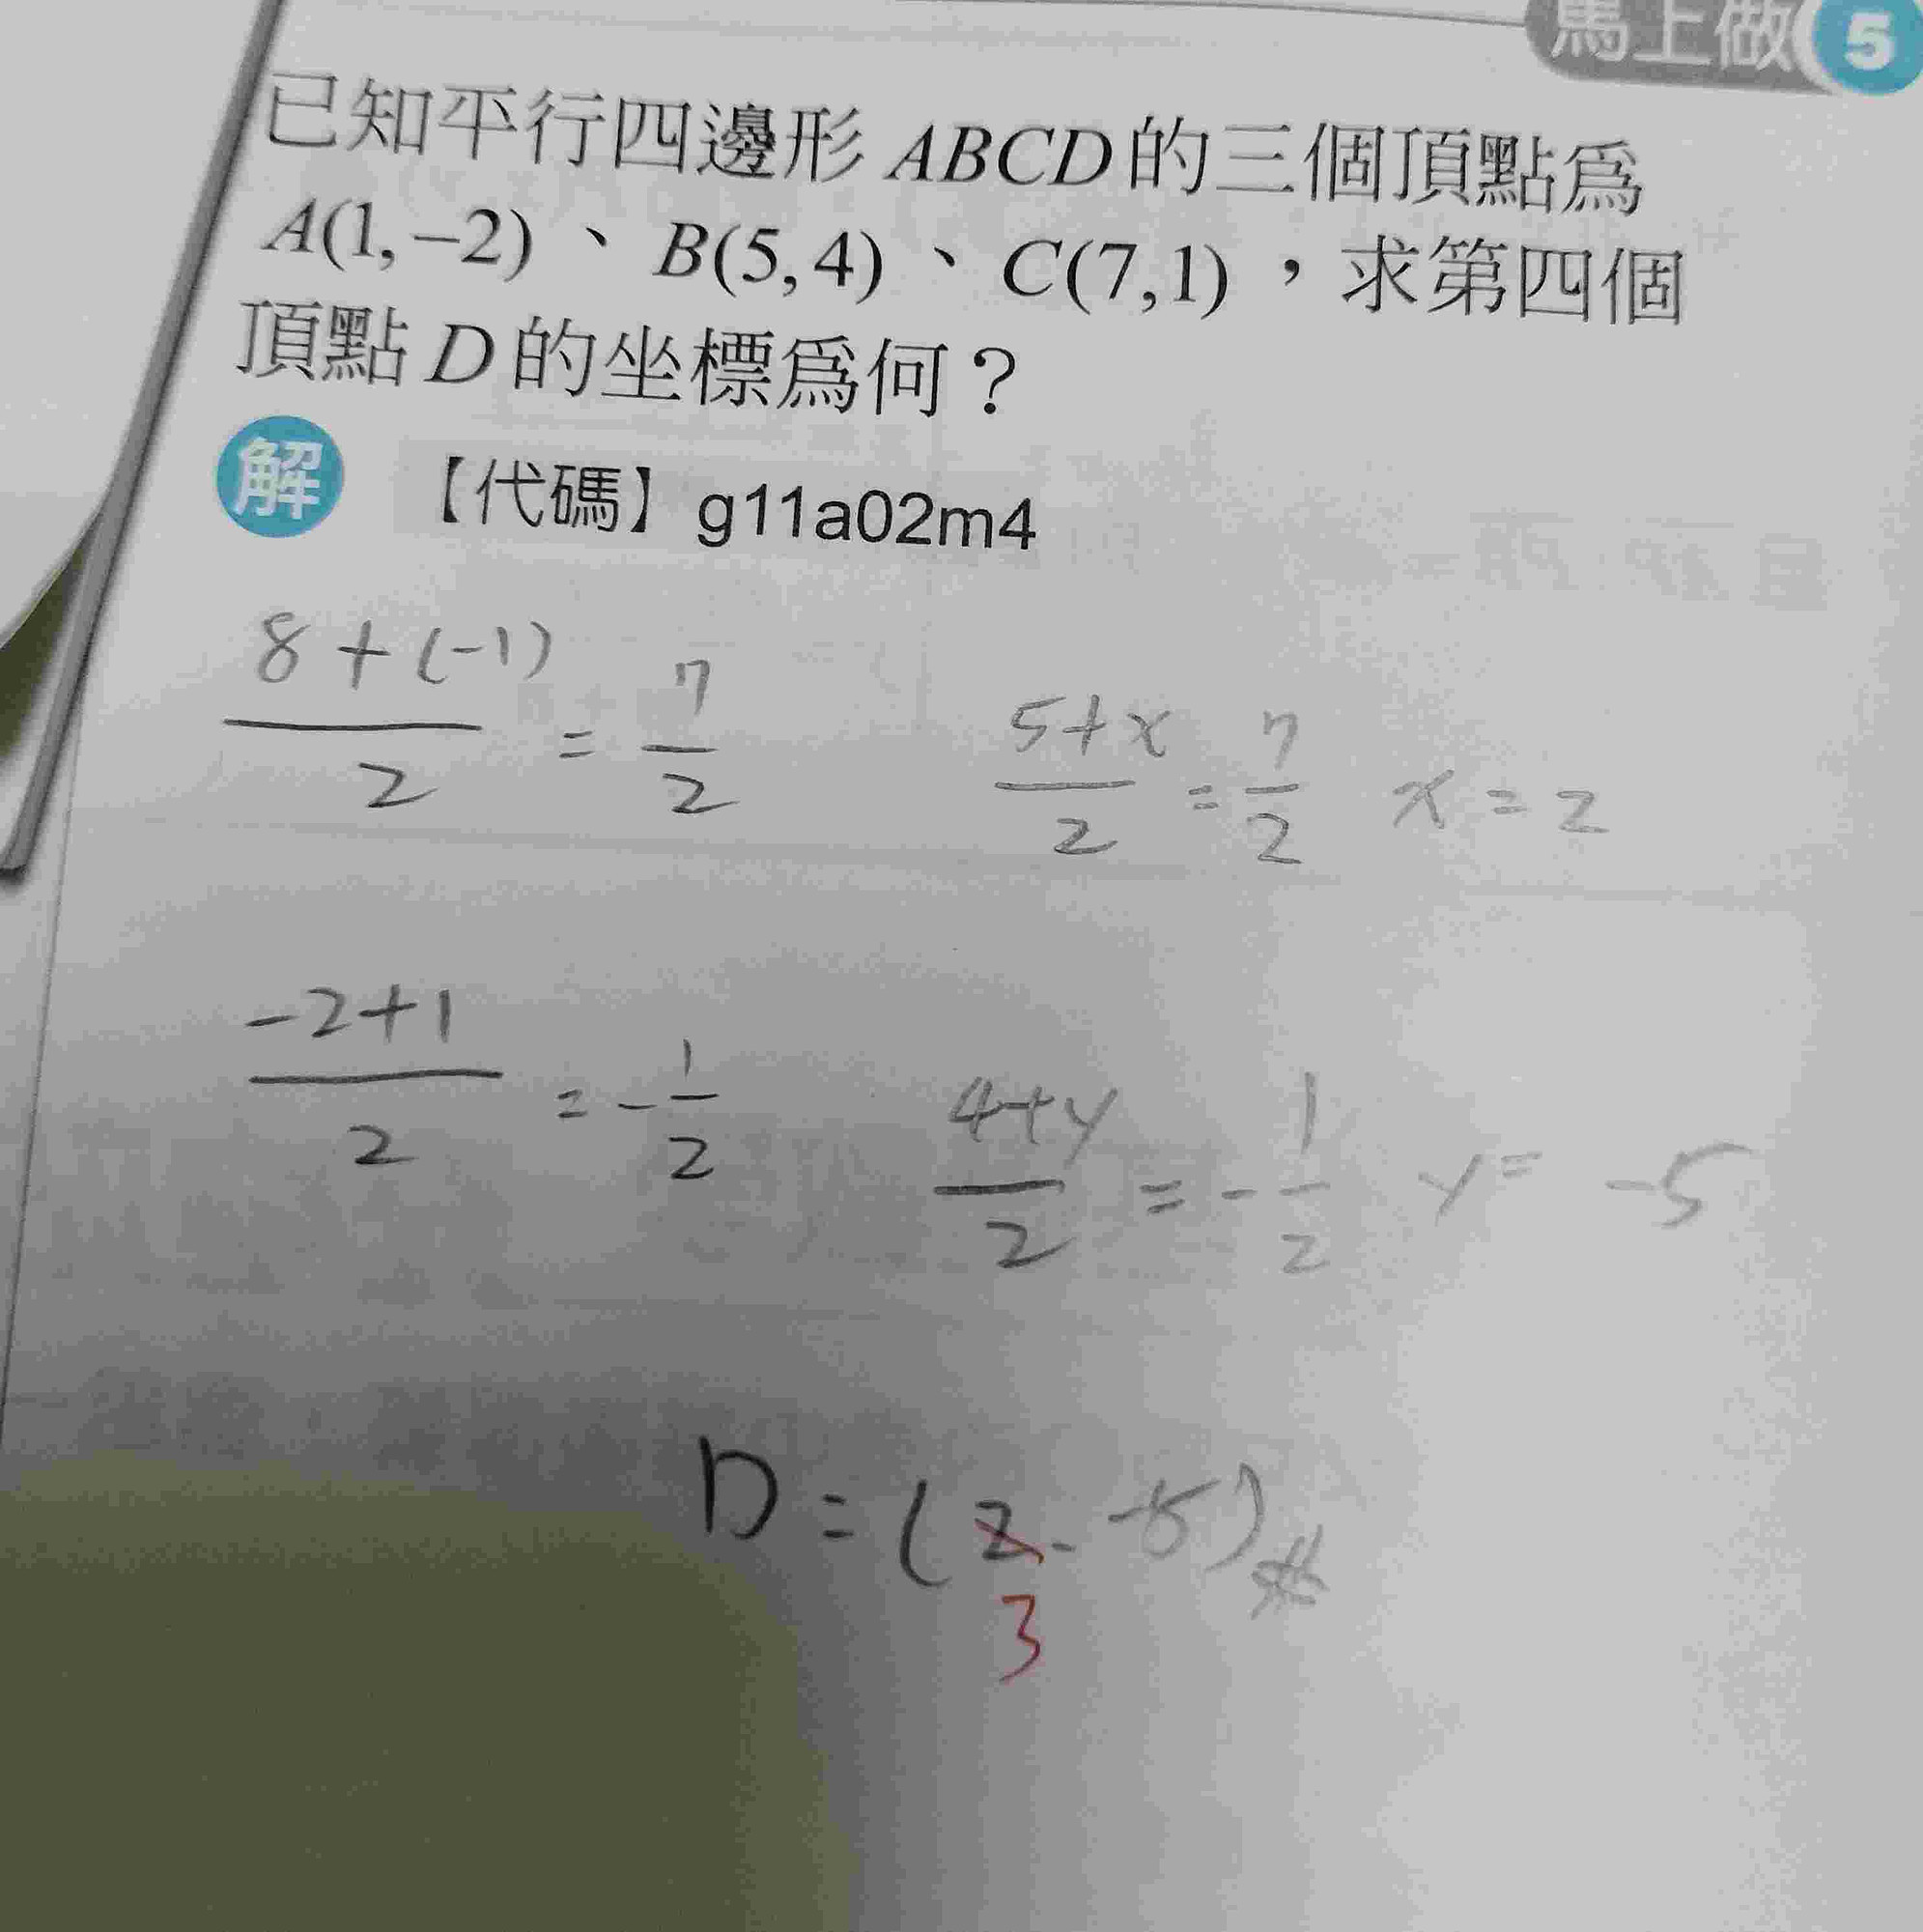 馬上做 5
已知平行四邊形 ABCD 的三個頂點為
A(1,−2)、B(5,4)、C(7,1),求第四個
頂點 D 的坐標為何?
解 【代碼】g11a02m4
8+(-1)/2 = 7/2  5+x/2 = 7/2  x=2
-2+1/2 = -1/2  4+y/2 = -1/2  y= -5
D=(2, -5)#
3